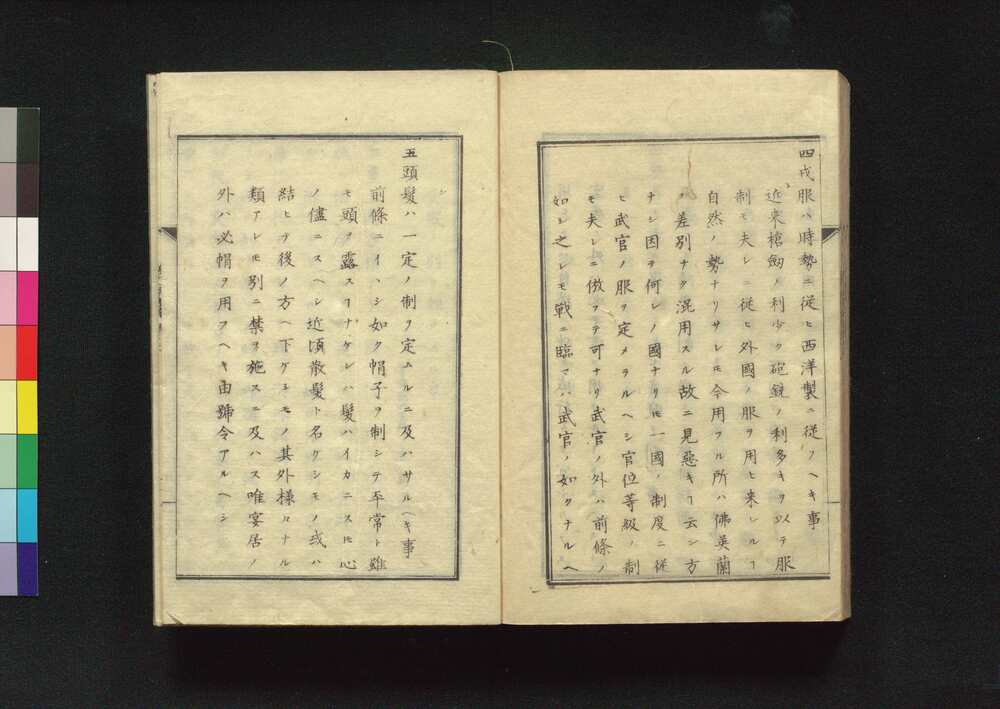 四戎服ハ時勢ニ従ヒ西洋製ニ従フヘキ事
近来槍劔ノ利少ク砲銃ノ利多キヲ以テ服
制モ夫レニ従ヒ外國ノ服ヲ用ヒ来レルヿ
自然ノ勢ナリサレ𪜈今用フル所ハ佛英蘭
ノ差別ナク混用スル故ニ見惡キヿ云シ方
ナシ因テ何レノ國ナリ𪜈一國ノ制度ニ從
ヒ武官ノ服ヲ定メラルヘシ官位等級ノ制
モ夫レニ倣フテ可ナリ武官ノ外ハ前條ノ
如シ之レモ戰ニ臨マハ武官ノ如クナルヘ
シ
五頭髮ハ一定ノ制ヲ定ムルニ及ハサルヘキ事
前條ニイヽシ如ク帽子ヲ制シテ平常ト雖
モ頭ヲ露スヿナケレハ髮ハイカニス𪜈心
ノ儘ニスヘシ近頃散髮ト名クシモノ或ハ
結ヒテ後ノ方ヘ下グルモノ其外様々ナル
類アレ𪜈別ニ禁ヲ施スニ及ハス唯宴居ノ
外ハ必帽ヲ用フヘキ由號令アルヘシ